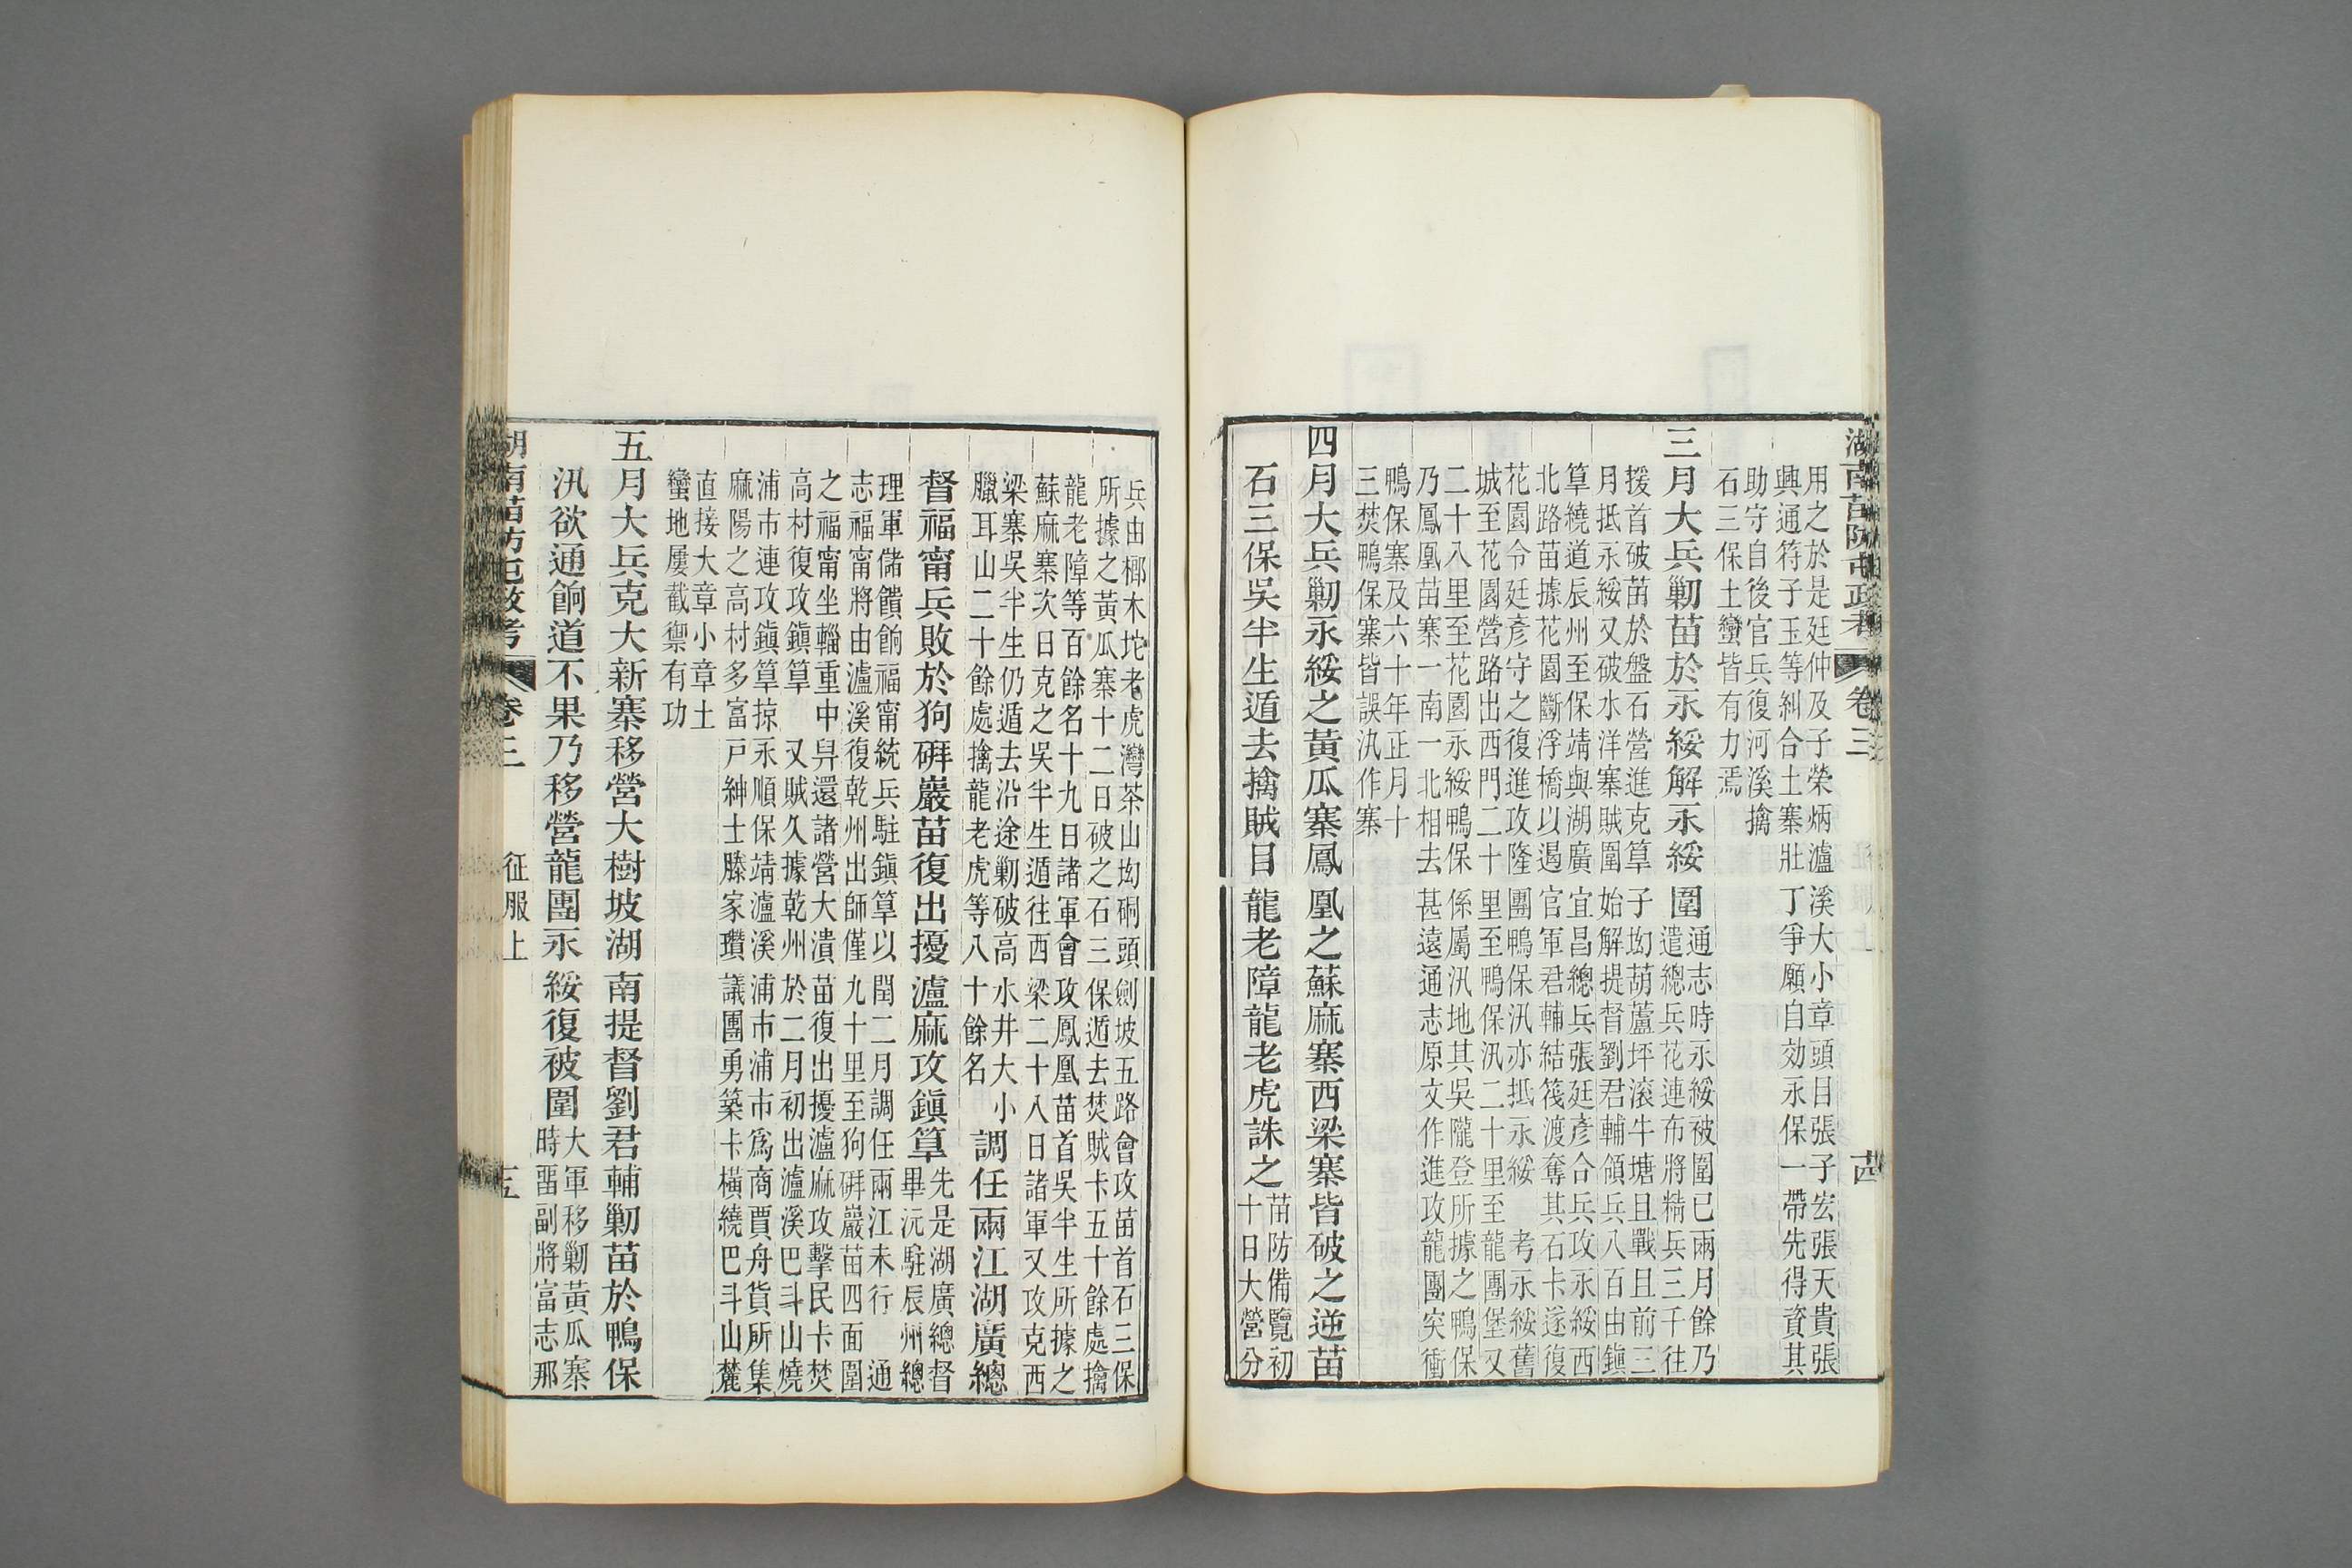 湖南苗防屯政考 卷三 十四
用之於是廷仲及子榮炳瀘溪大小章頭目張子宏張天貴張
興通符子玉等糾合土寨壯丁爭願自効永保一帶先得資其
助守自後官兵復河溪擒
石三保土蠻皆有力焉
三月大兵剿苗於永綏解永綏圍
通志時永綏被圍已兩月餘乃
遣總兵花連布將精兵三千往
援首破苗於盤石營進克筸子坳葫蘆坪滚牛塘且戰且前三
月抵永綏又破水洋寨賊圍始解提督劉君輔領兵八百由鎮
筸繞道辰州至保靖與湖廣宜昌總兵張廷彥合兵攻永綏西
北路苗據花園斷浮橋以遏官軍君輔結筏渡奪其石卡遂復
花園令廷彥守之復進攻隆團鴨保汛亦抵永綏 考永綏舊
城至花園營路出西門二十里至鴨保汛二十里至龍團堡又
二十八里至花園永綏鴨保係屬汛地其吳隴登所據之鴨保
乃鳳凰苗寨一南一北相去甚遠通志原文作進攻龍團突衝
鴨保寨及六十年正月十
三焚鴨保寨皆誤汛作寨
四月大兵剿永綏之黃瓜寨鳳凰之蘇麻寨西梁寨皆破之逆苗
石三保吳半生遁去擒賊目龍老障龍老虎誅之
苗防備覽初
十日大營分
兵由椰木坨老虎灣茶山坳硐頭劍坡五路會攻苗首石三保
所據之黃瓜寨十二日破之石三保遁去焚賊卡五十餘處擒
龍老障等百餘名十九日諸軍會攻鳳凰苗首吳半生所據之
蘇麻寨次日克之吳半生遁往西梁二十八日諸軍又攻克西
梁寨吳半生仍遁去沿途剿破高水井大小
臘耳山二十餘處擒龍老虎等八十餘名
調任兩江湖廣總
督福甯兵敗於狗硑巖苗復出擾瀘麻攻鎮筸
先是湖廣總督
畢沅駐辰州總
理軍儲饋餉福甯統兵駐鎮筸以閏二月調任兩江未行 通
志福甯將由瀘溪復乾州出師僅九十里至狗硑巖苗四面圍
之福甯坐輜重中舁還諸營大潰苗復出擾瀘麻攻擊民卡焚
高村復攻鎮筸 又賊久據乾州於二月初出瀘溪巴斗山燒
浦市連攻鎮筸掠永順保靖瀘溪浦市浦市爲商賈舟貨所集
麻陽之高村多富戶紳士滕家瓚議團勇築卡橫繞巴斗山麓
直接大章小章土
蠻地屢截禦有功
五月大兵克大新寨移營大樹坡湖南提督劉君輔剿苗於鴨保
汛欲通餉道不果乃移營龍團永綏復被圍
大軍移剿黃瓜寨
時畱副將富志那
湖南苗防屯政考 卷三 征服上 五